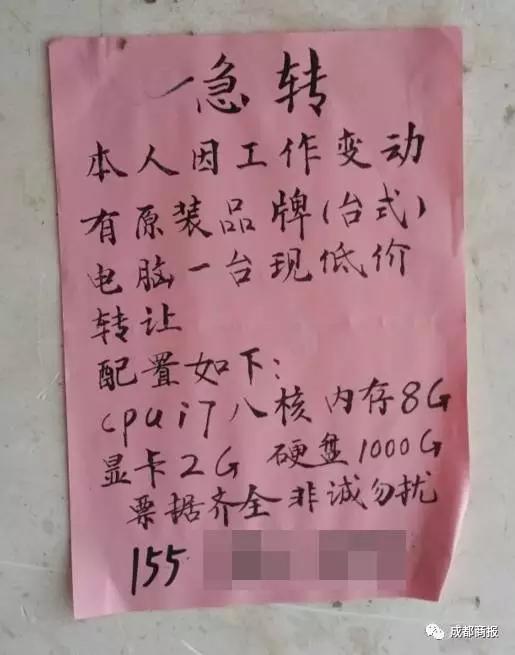 急转
本人因工作变动
有原装品牌(台式)
电脑一台现低价
转让
配置如下:
cpu i7 八核 内存8G
显卡2G 硬盘1000G
票据齐全 非诚勿扰
155
成都商报